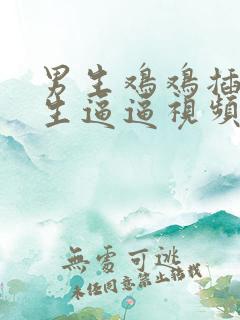 男生鸡鸡插
生逼逼视频
無處可逃
未经同意禁止转载